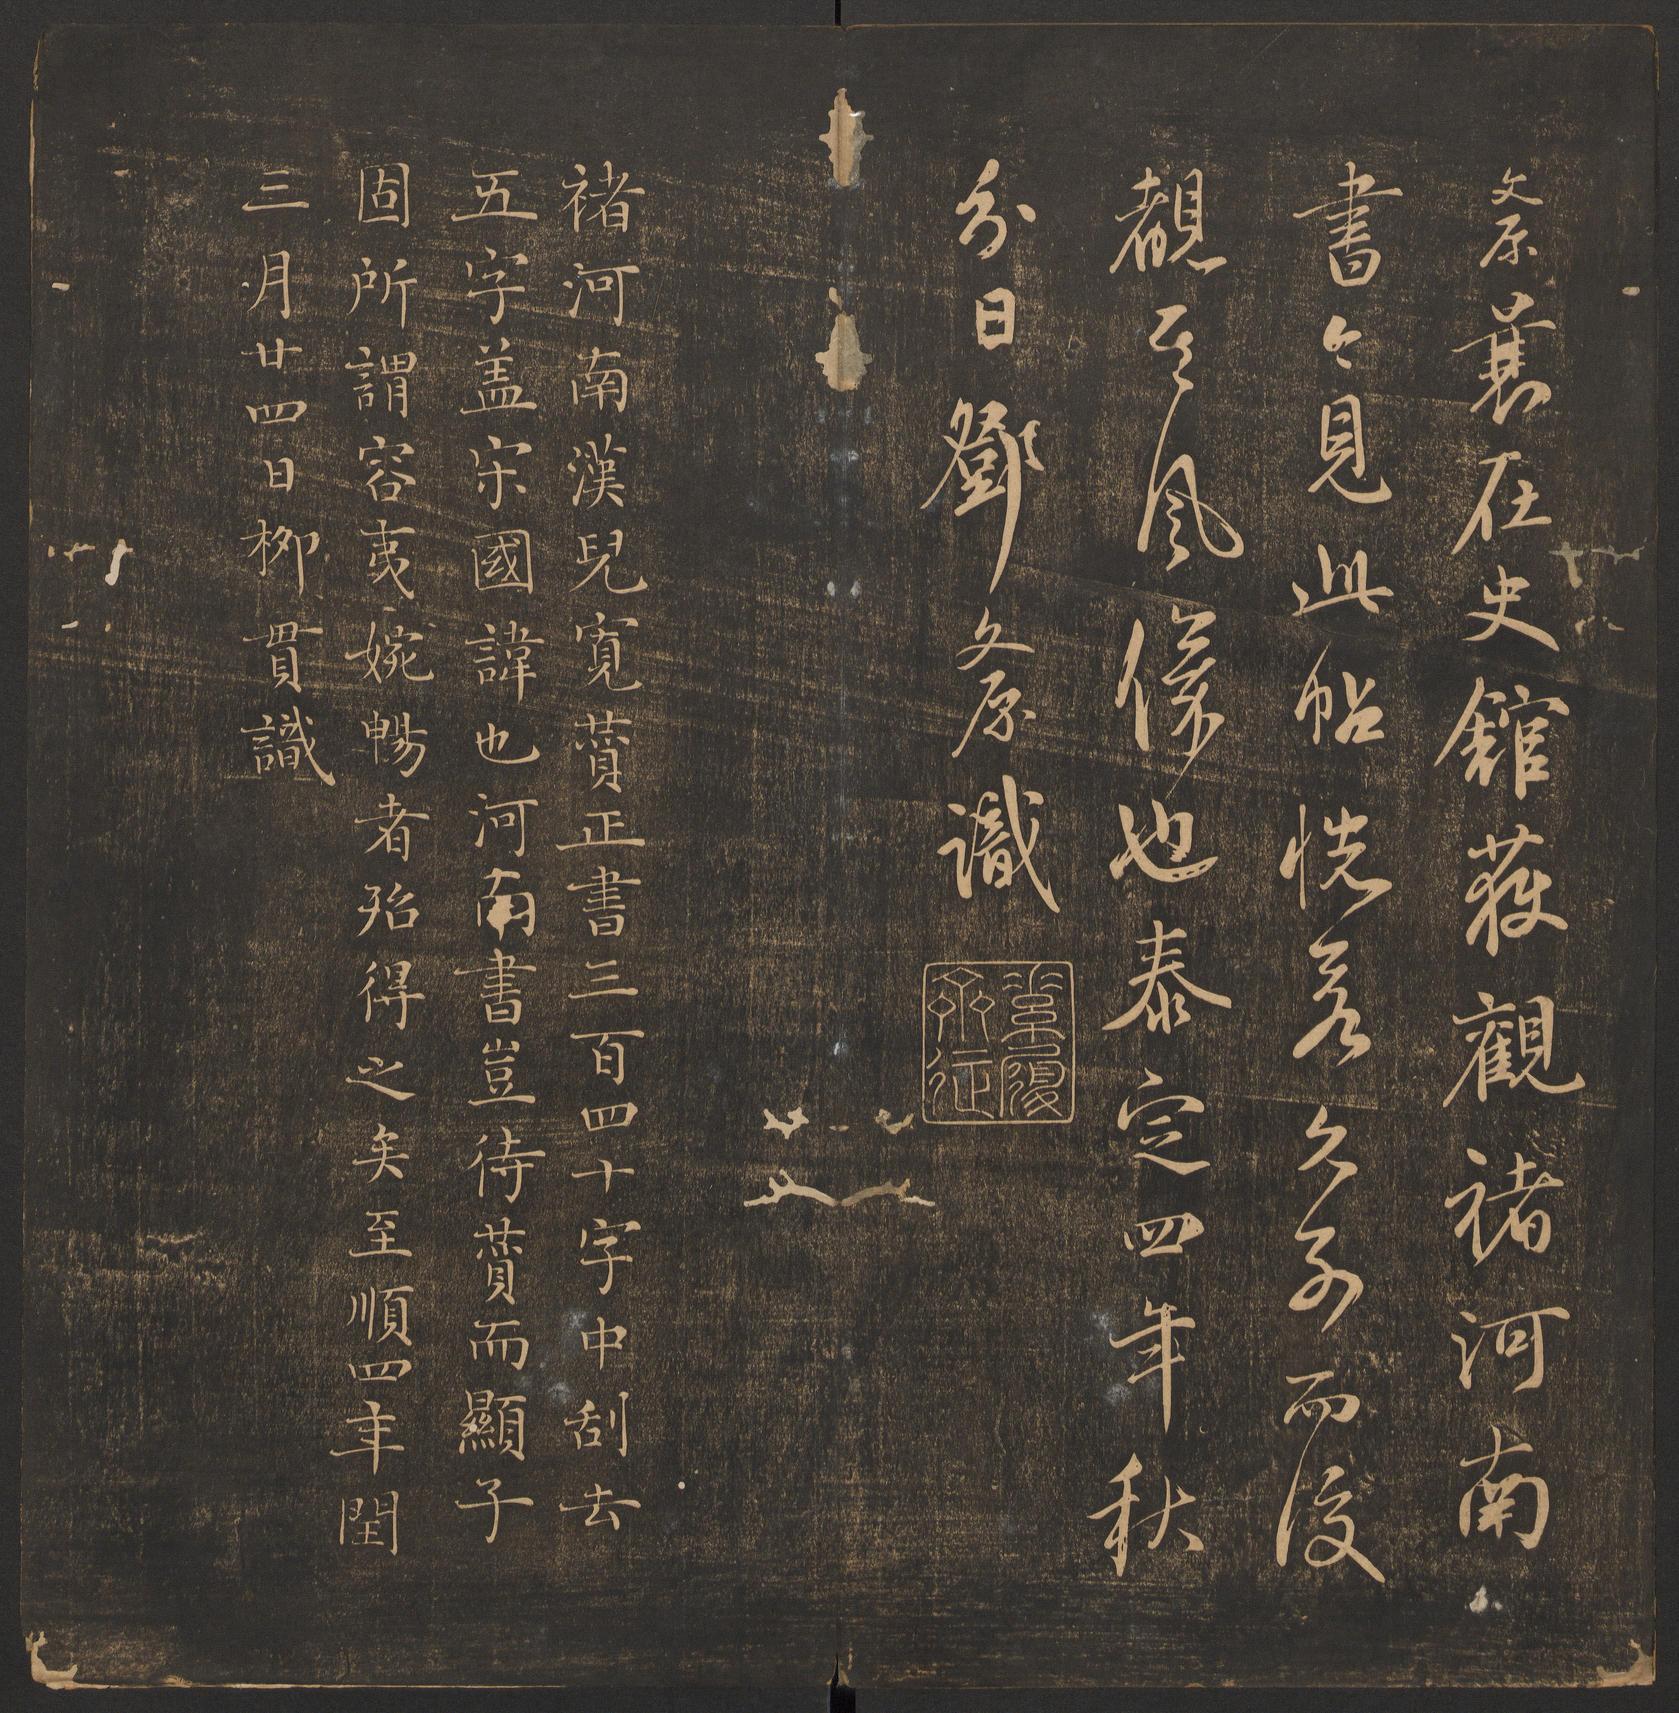 文原曩在史館獲觀褚河南
書今見此帖恍若久別而復
覩其風儀也泰定四年秋
分日鄧文原識
褚河南漢兒寬贊正書三百四十字中刮去
五字盖宋國諱也河南書豈待贊而顯子
固所謂容夷婉暢者殆得之矣至順四年閏
三月廿四日柳貫識